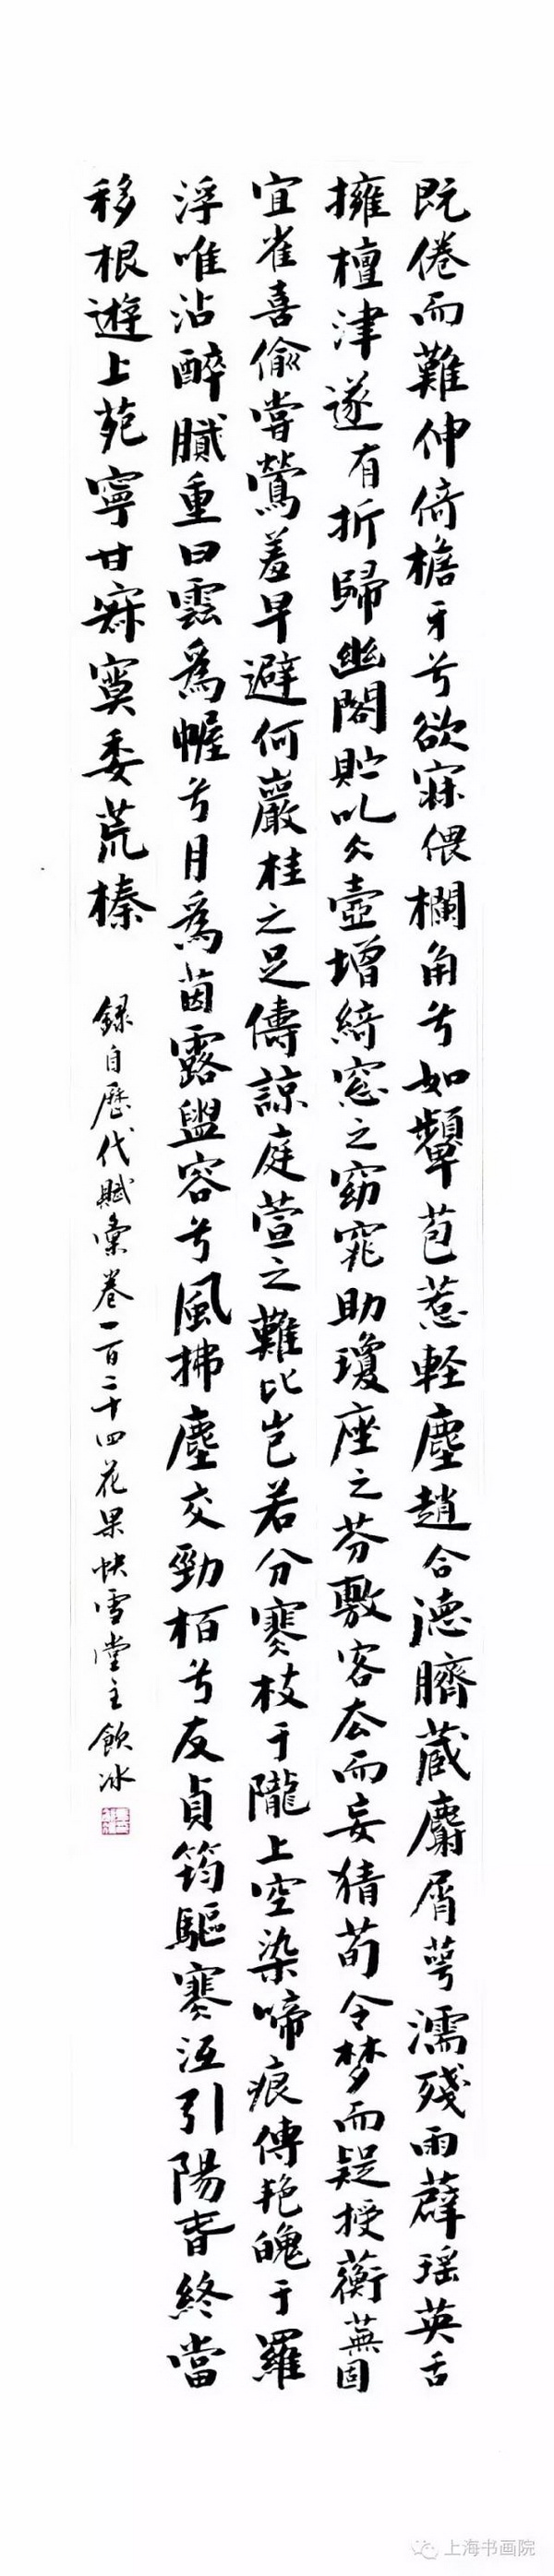 既倦而難伸倚檐牙兮欲寐偎欄角兮如顰苞惹輕塵趙合德臍蔵麝屑萼濡殘雨薛瑶英舌
擁檀津遂有折歸幽閣貯以久壺增綺窓之窈窕助瓊座之芬敷客去而妄猜荀令梦而疑授蘅蕪固
宜雀喜偷嘗鶯羞早避何巖桂之足傳諒庭萱之難比岂若分寒枝于隴上空染啼痕傳艳魄于羅
浮唯沾醉膩重曰雲爲幄兮月爲茵露盥容兮風拂塵交勁栢兮友貞筠驅寒沍引陽春終當
移根遊上苑寧甘寂寞委荒榛
録自歷代賦彙卷一百二十四花果快雪堂主飲冰
上海书画院